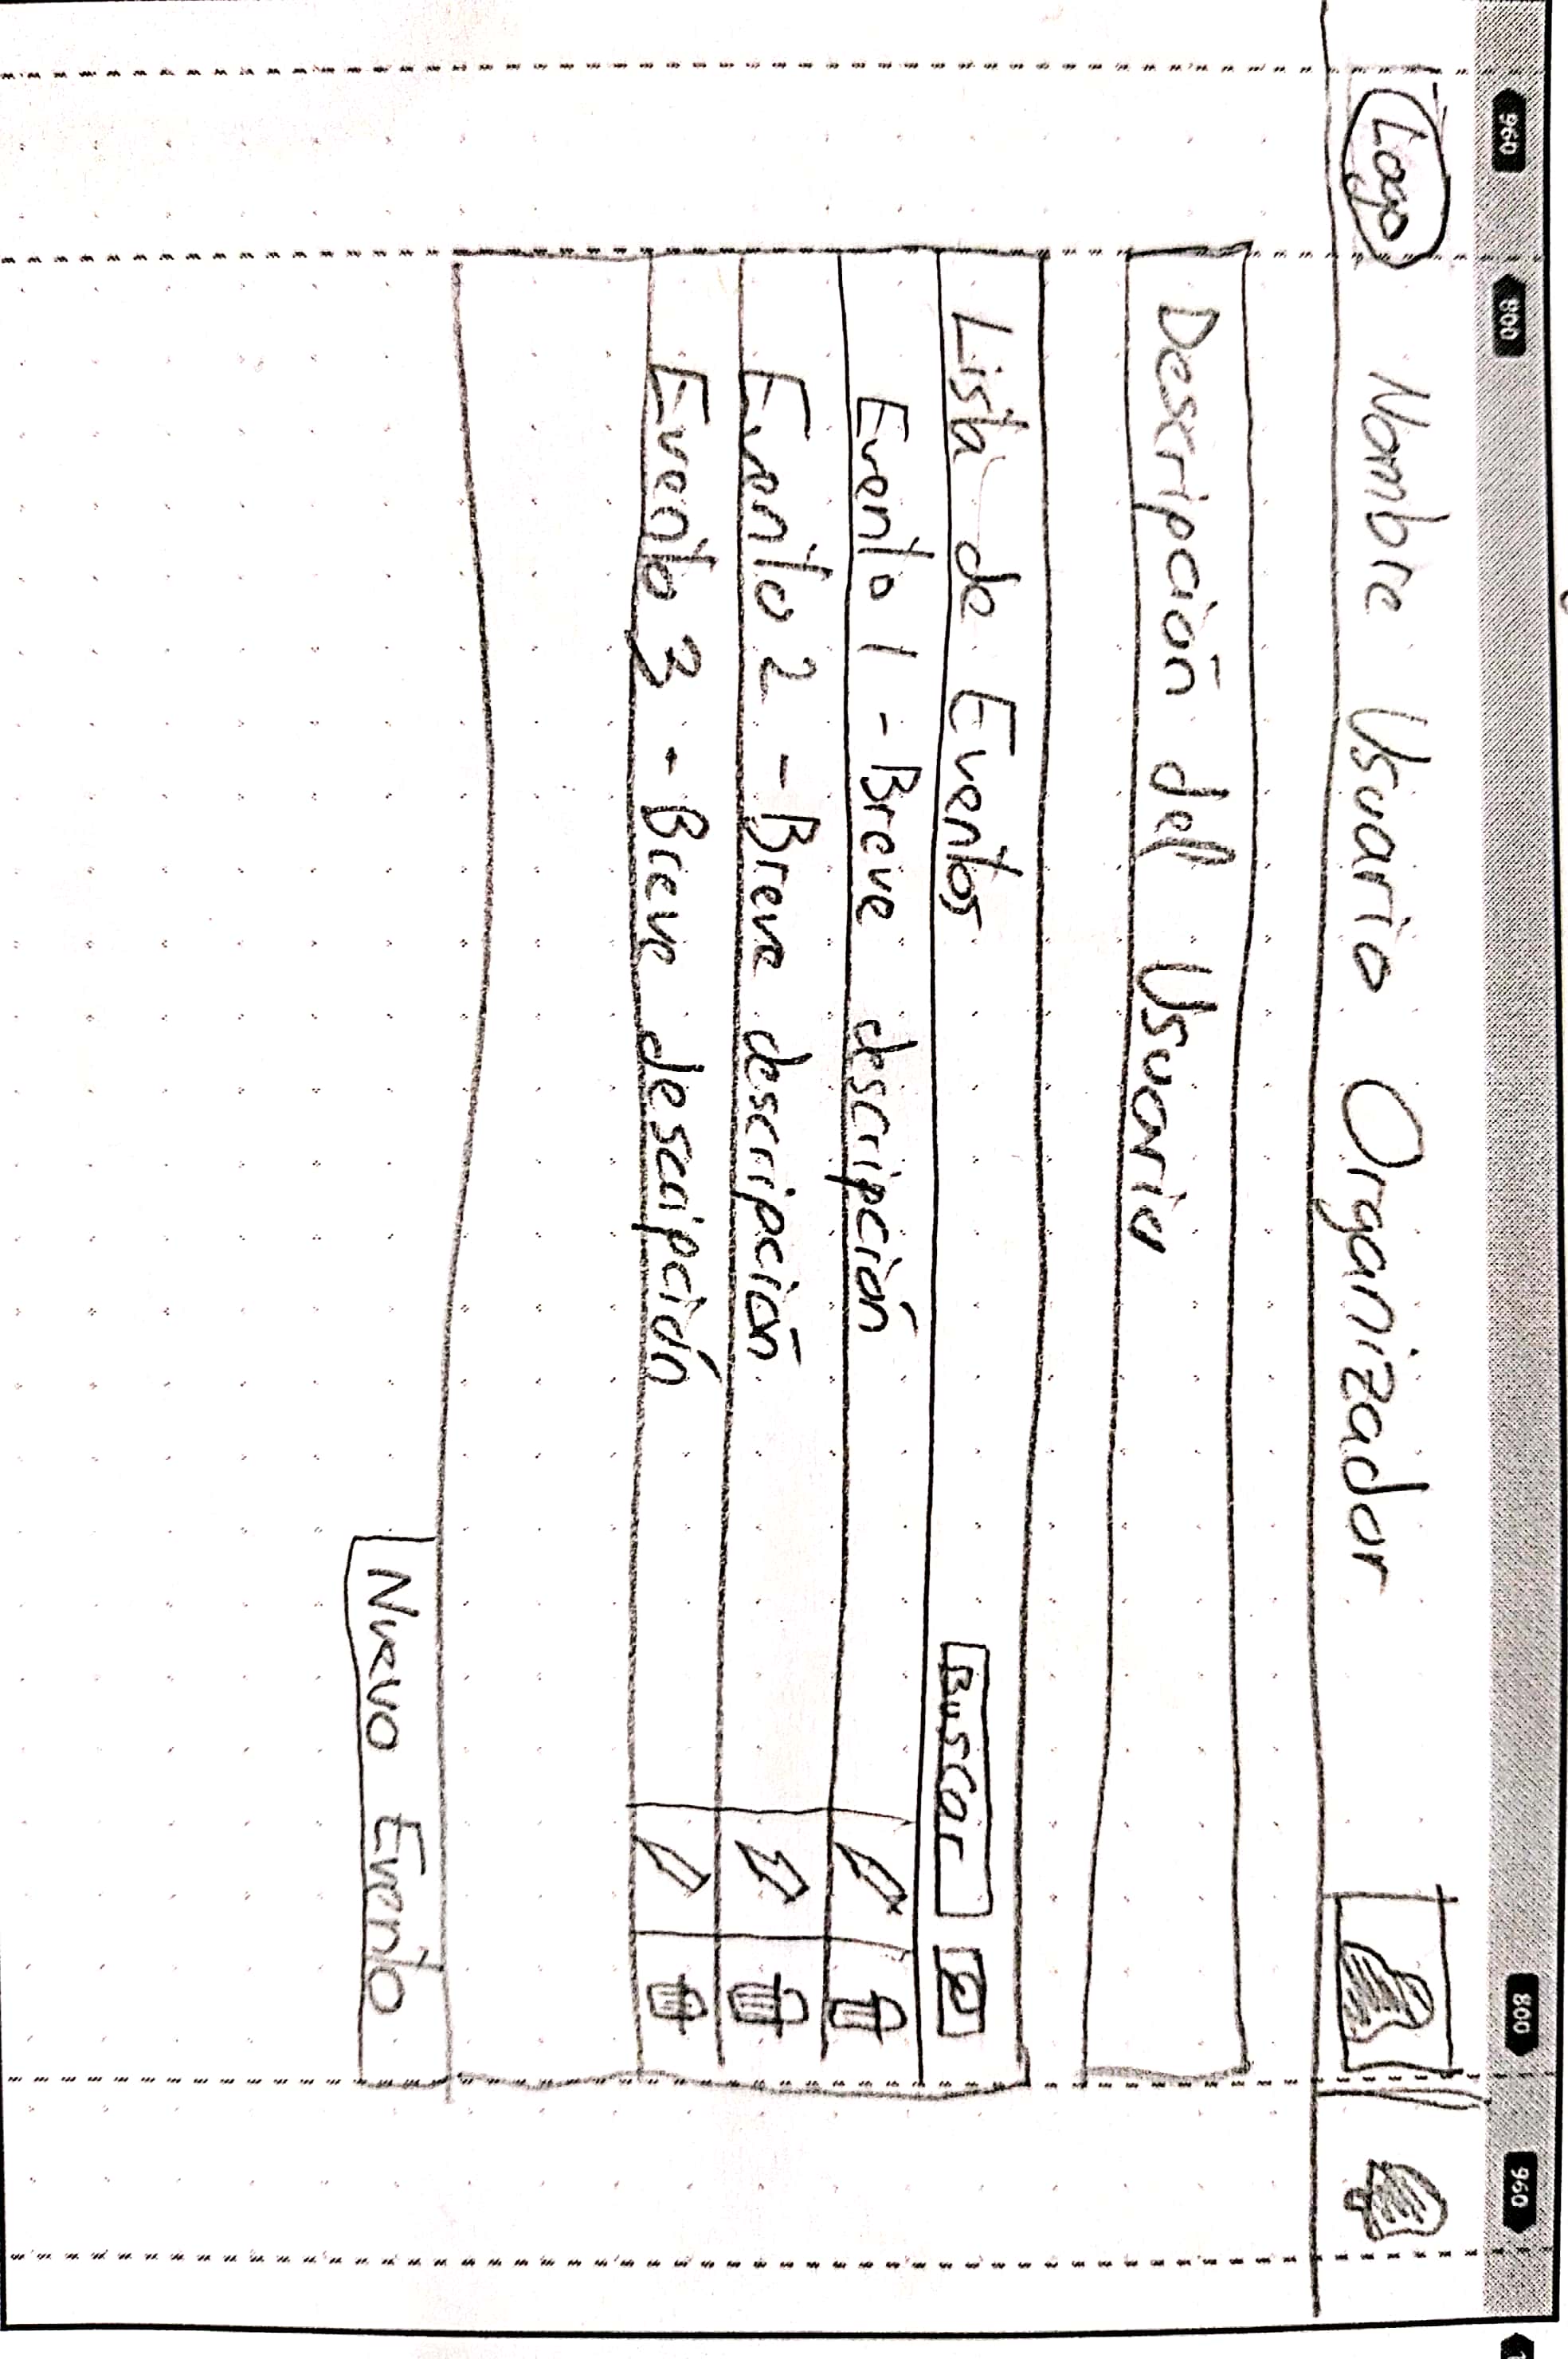 960 800 800 960
Logo Nombre Usuario Organizador
Descripción del Usuario
Lista de Eventos Buscar
Evento 1 - Breve descripción
Evento 2 - Breve descripción
Evento 3 - Breve descripción
Nuevo Evento